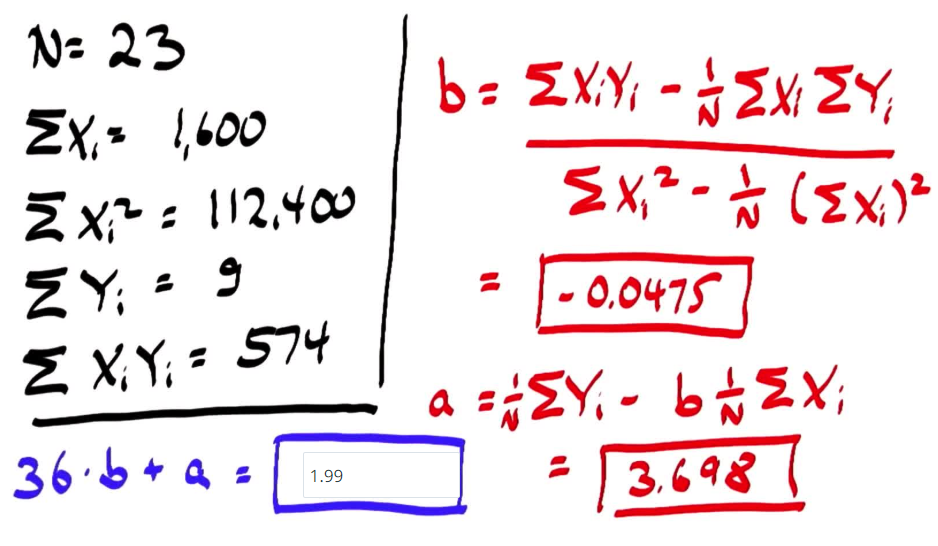 N= 23
ΣXᵢ= 1,600
ΣXᵢ² = 112,400
ΣYᵢ = 9
ΣXᵢYᵢ = 574
36·b + a = 1.99
b = (ΣXᵢYᵢ - 1/N ΣXᵢ ΣYᵢ) / (ΣXᵢ² - 1/N (ΣXᵢ)²)
= -0.0475
a = 1/N ΣYᵢ - b 1/N ΣXᵢ
= 3.698